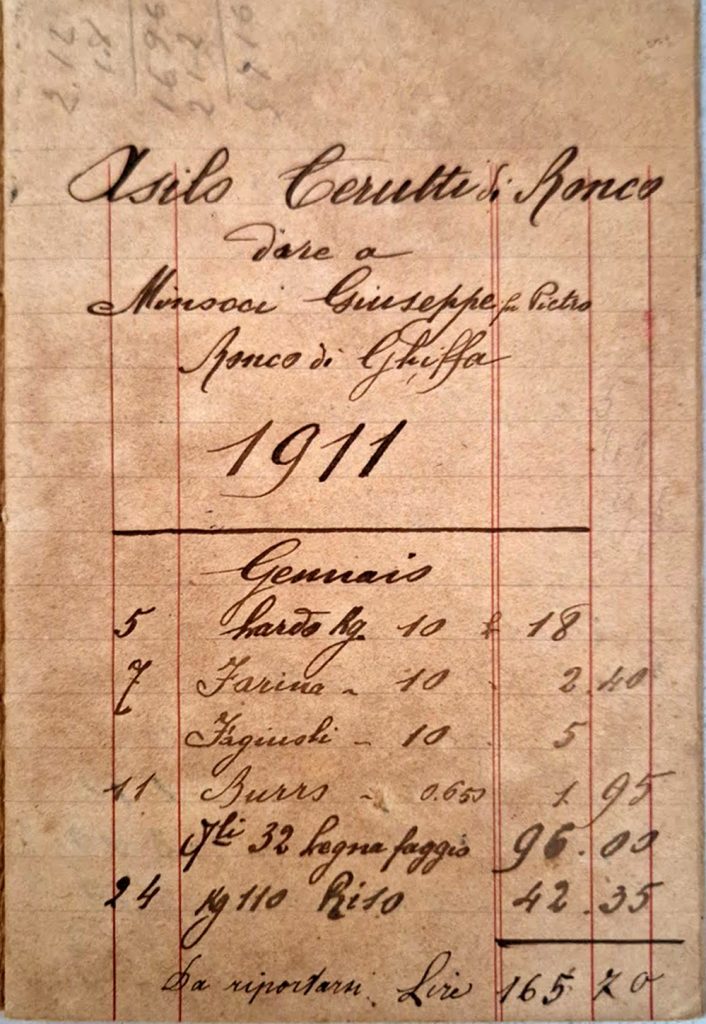 2.12
18
1696
212
3916
Asilo Cerutti di Ronco
dare a
Minsoci Giuseppe fu Pietro
Ronco di Ghiffa
1911
Gennaio
5 Lardo Kg 10 £ 18
7 Farina " 10 " 2.40
Fagiuoli " 10 " 5
11 Burro " 0.650 1.95
Qli 32 Legna faggio 96.00
24 Kg 110 Riso 42.35
Da riportarsi Lire 165 70